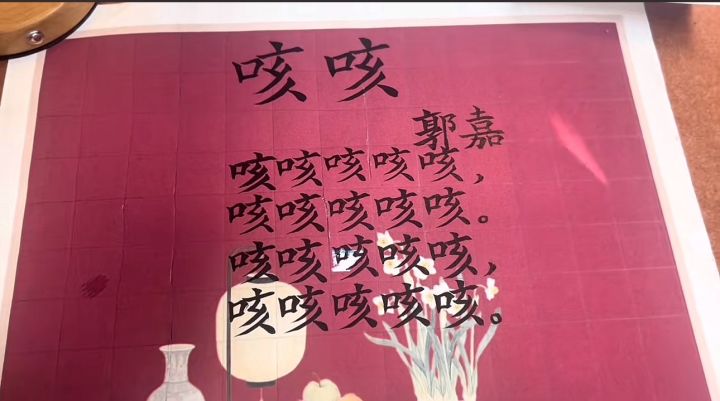 咳咳
郭嘉
咳咳咳咳咳，
咳咳咳咳咳。
咳咳咳咳咳，
咳咳咳咳咳。